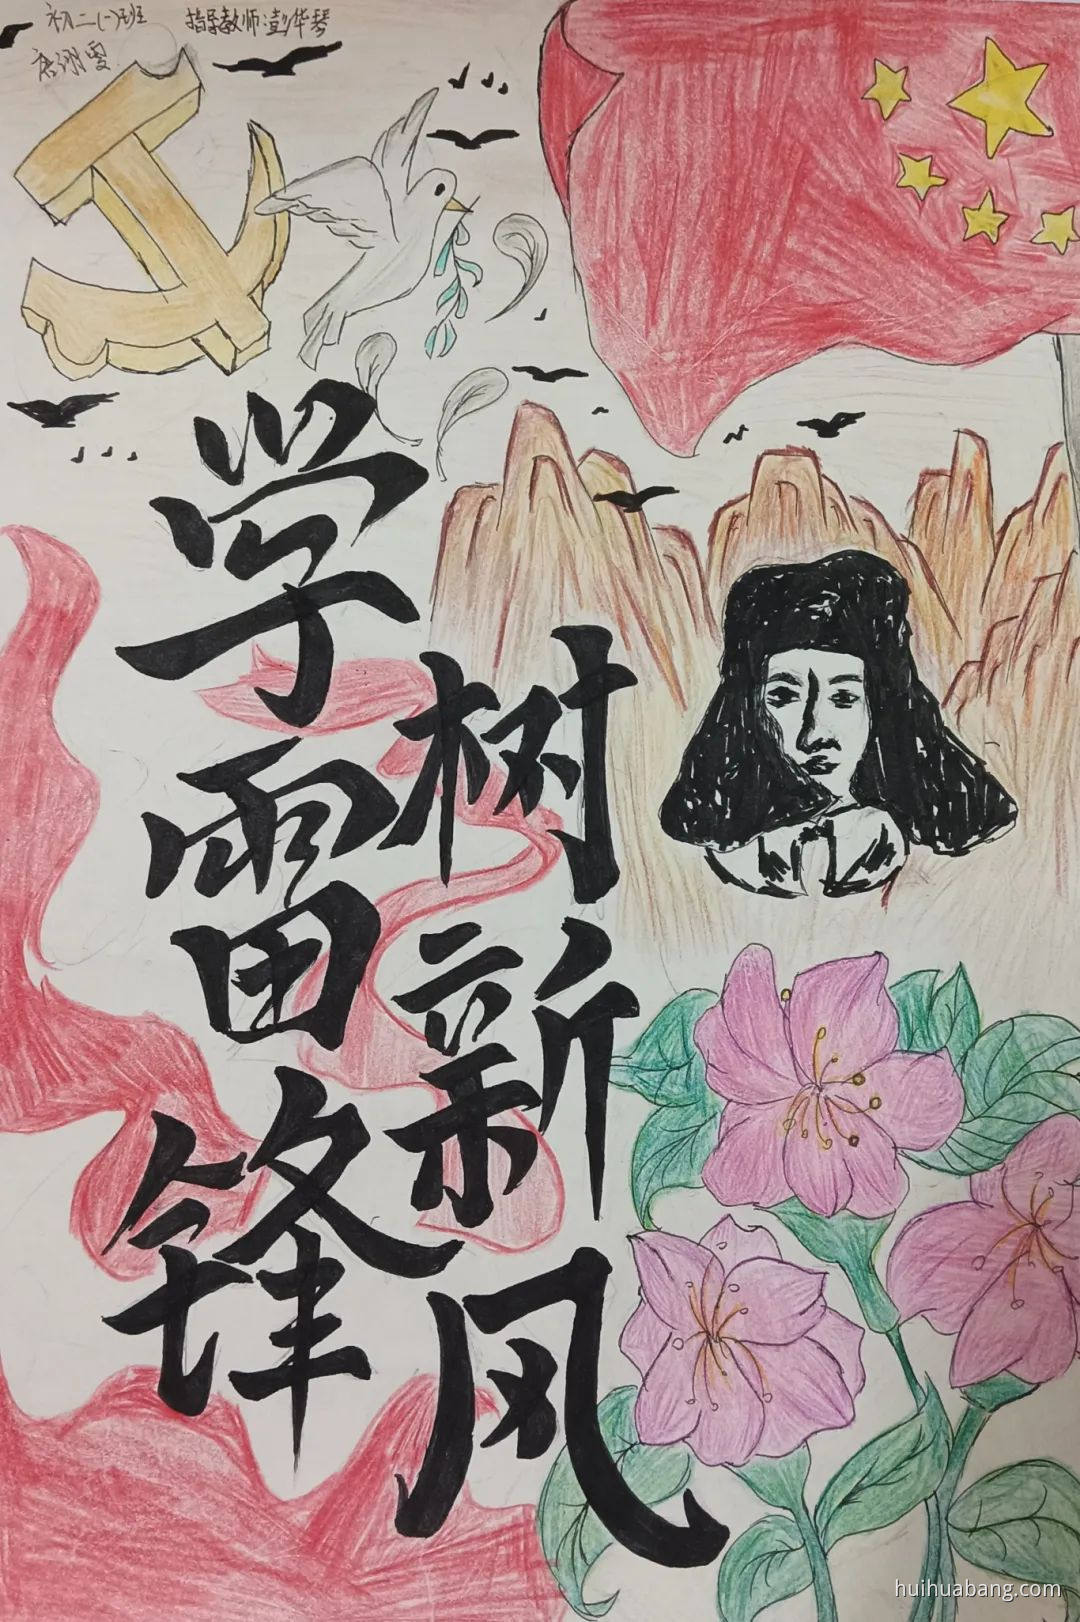 初二(一)班 指导教师:彭华琴
唐翊雯
学雷锋
树新风
huihuabang.com